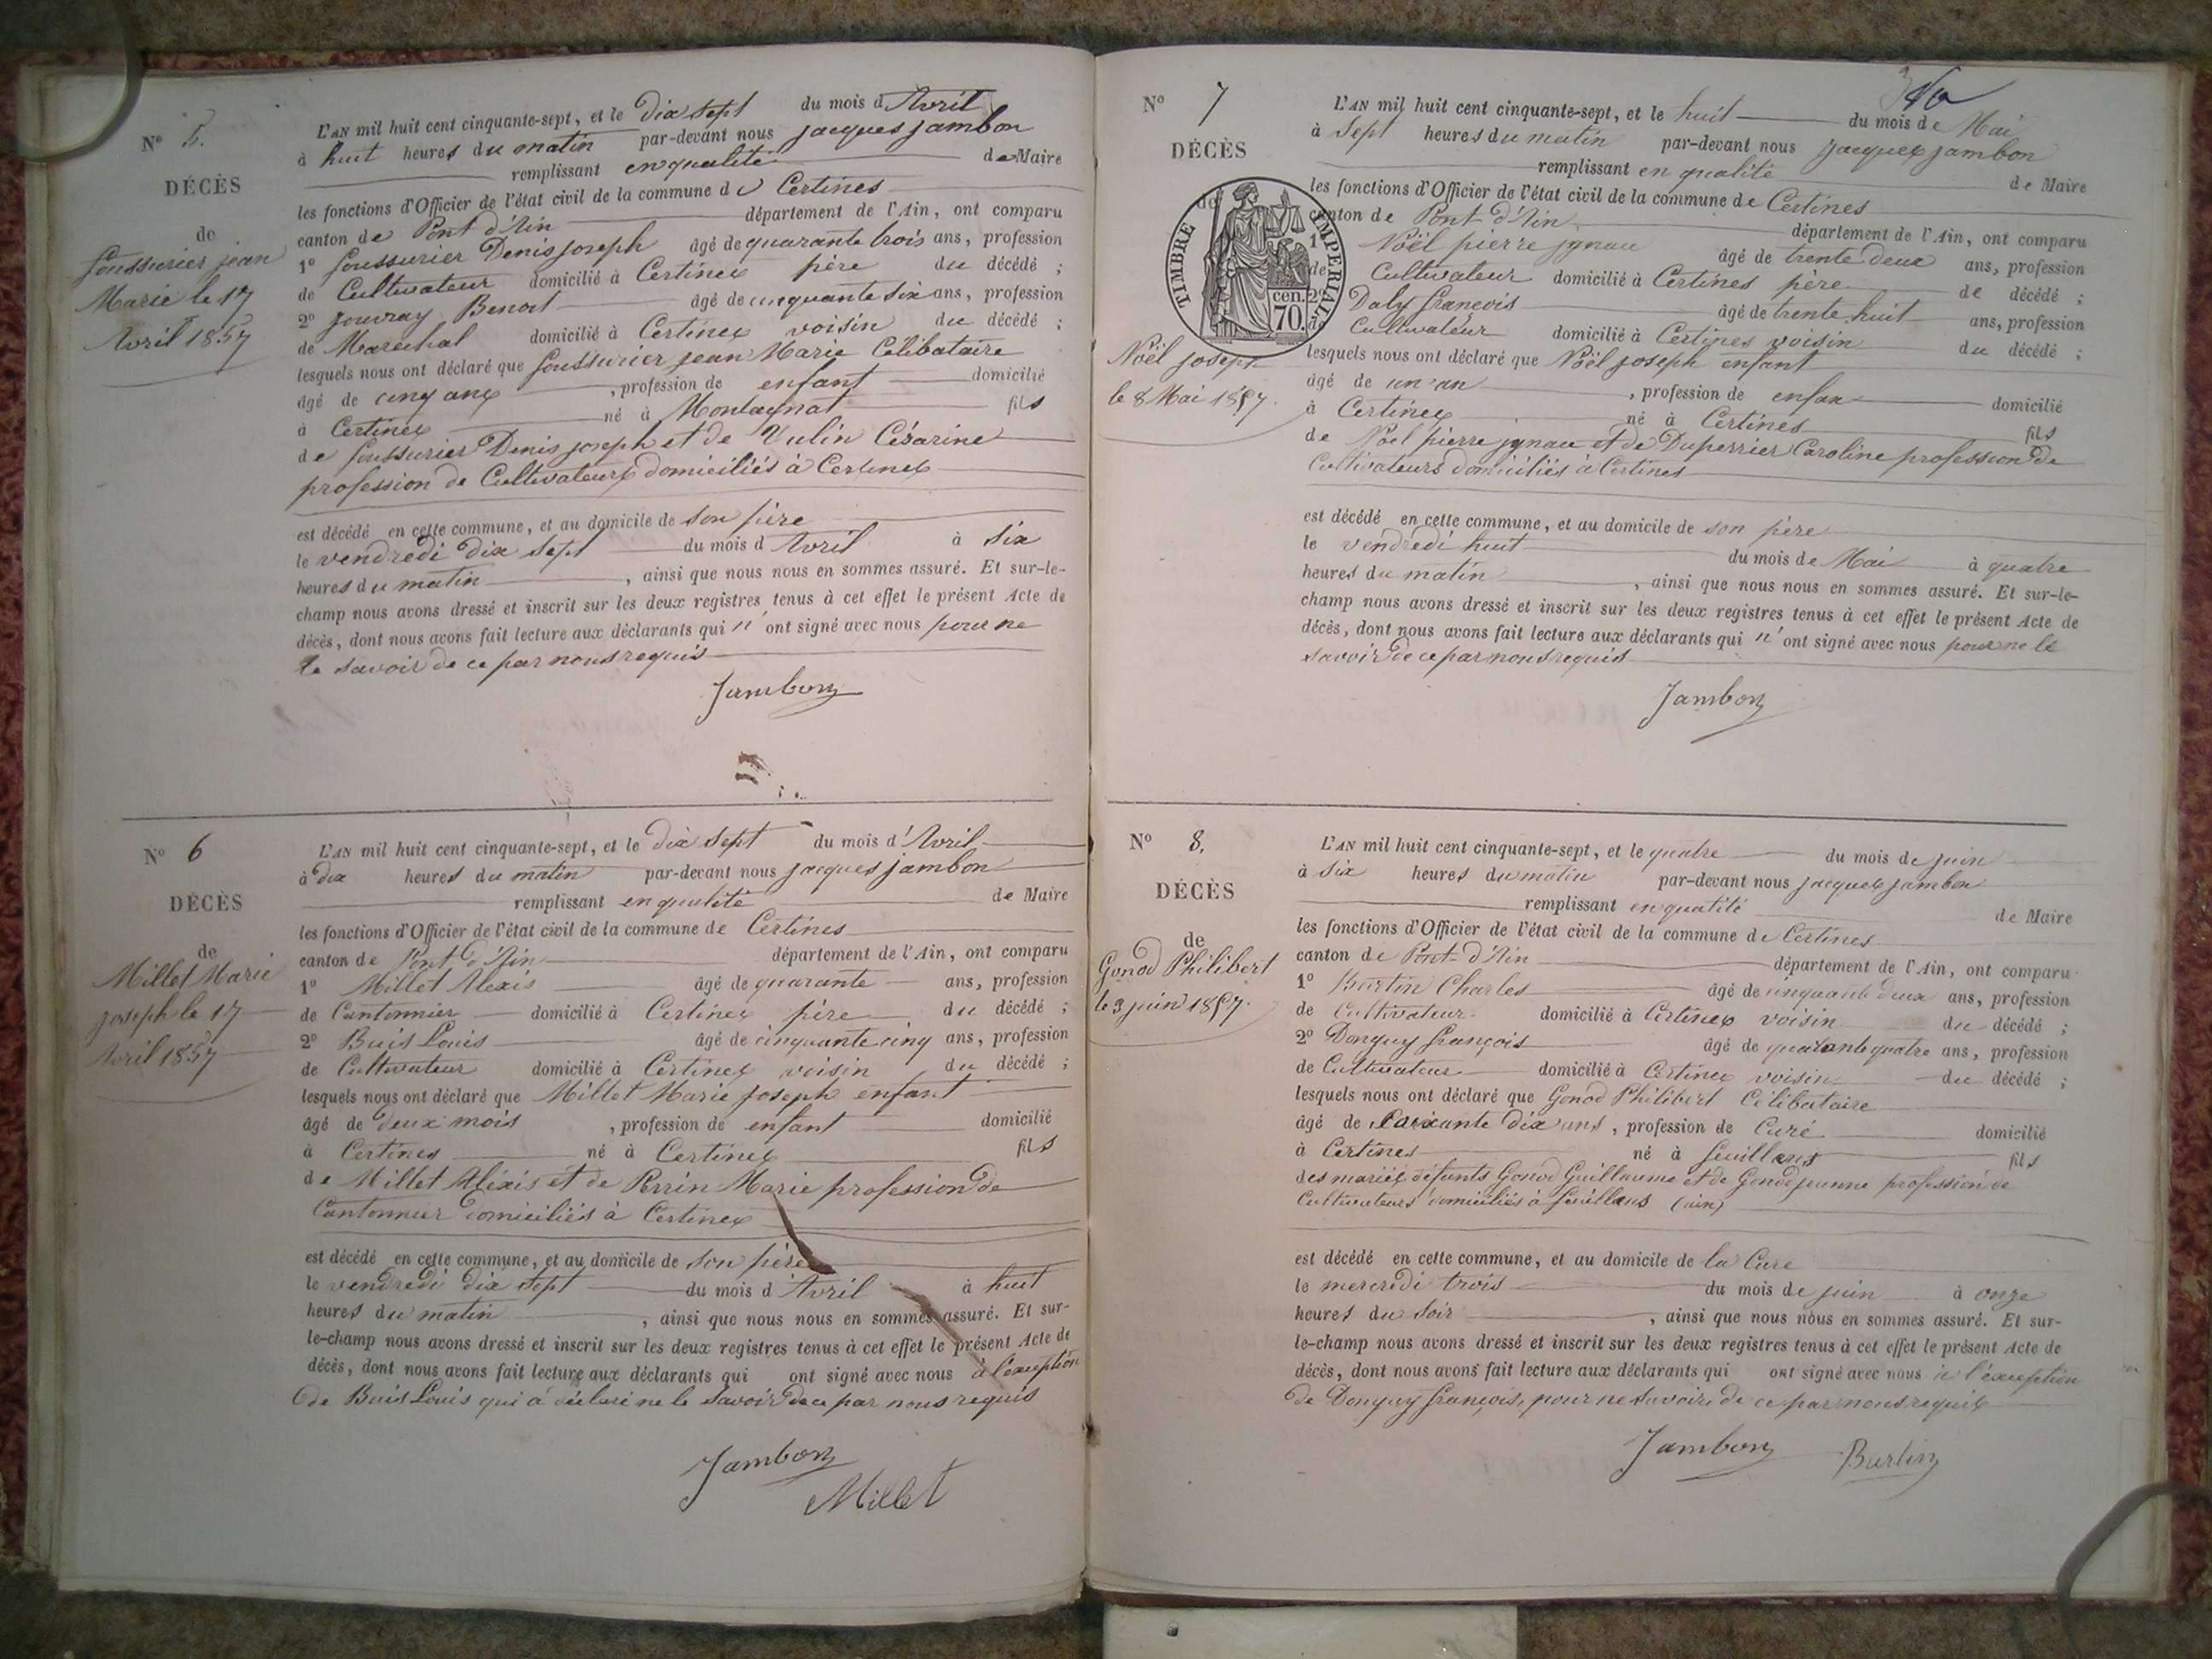 N° 5.
DÉCÈS
de
Jean
Marie le 17
Avril 1857
L'AN mil huit cent cinquante-sept, et le Dix sept du mois d'Avril
à huit heures du matin par-devant nous jacques jambon
remplissant en qualité de Maire
les fonctions d'Officier de l'état civil de la commune de Certines
canton de Pont d'Ain département de l'Ain, ont comparu
1° Denis joseph âgé de quarante trois ans, profession
de Cultivateur domicilié à Certines père du décédé ;
2° Benoit âgé de cinquante six ans, profession
de Marechal domicilié à Certines voisin du décédé ;
lesquels nous ont déclaré que jean Marie Célibataire
âgé de cinq ans, profession de enfant domicilié
à Certines né à Montagnat fils
de Denis joseph et de Vulin Césarine
profession de Cultivateurs domiciliés à Certines
est décédé en cette commune, et au domicile de son père
le vendredi dix sept du mois d'Avril à six
heures du matin, ainsi que nous nous en sommes assuré. Et sur-le-
champ nous avons dressé et inscrit sur les deux registres tenus à cet effet le présent Acte de
décès, dont nous avons fait lecture aux déclarants qui n'ont signé avec nous pour ne
le savoir de ce par nous requis
Jambon
N° 6
DÉCÈS
de
Millet Marie
joseph le 17
Avril 1857
L'AN mil huit cent cinquante-sept, et le dix sept du mois d'Avril
à dix heures du matin par-devant nous jacques jambon
remplissant en qualité de Maire
les fonctions d'Officier de l'état civil de la commune de Certines
canton de Pont d'Ain département de l'Ain, ont comparu
1° Millet Alexis âgé de quarante ans, profession
de Cantonnier domicilié à Certines père du décédé ;
2° Buis Louis âgé de cinquante cinq ans, profession
de Cultivateur domicilié à Certines voisin du décédé ;
lesquels nous ont déclaré que Millet Marie joseph enfant
âgé de deux mois, profession de enfant domicilié
à Certines né à Certines fils
de Millet Alexis et de Perrin Marie profession de
Cantonnier domiciliés à Certines
est décédé en cette commune, et au domicile de son père
le vendredi dix sept du mois d'Avril à huit
heures du matin, ainsi que nous nous en sommes assuré. Et sur-
le-champ nous avons dressé et inscrit sur les deux registres tenus à cet effet le présent Acte de
décès, dont nous avons fait lecture aux déclarants qui ont signé avec nous à l'exception
de Buis Louis qui a déclaré ne le savoir de ce par nous requis
Jambon
Millet
N° 7
DÉCÈS
de
TIMBRE IMPERIAL
70 cen.
Noël joseph
le 8 Mai 1857.
L'AN mil huit cent cinquante-sept, et le huit du mois de Mai
à sept heures du matin par-devant nous jacques jambon
remplissant en qualité de Maire
les fonctions d'Officier de l'état civil de la commune de Certines
canton de Pont d'Ain département de l'Ain, ont comparu
1° Noël pierre âgé de trente deux ans, profession
de Cultivateur domicilié à Certines père de décédé ;
2° Daly françois âgé de trente huit ans, profession
de Cultivateur domicilié à Certines voisin du décédé ;
lesquels nous ont déclaré que Noël joseph enfant
âgé de un an, profession de enfan domicilié
à Certines né à Certines fils
de Noël pierre et de Duperrier Caroline profession de
Cultivateurs domiciliés à Certines
est décédé en cette commune, et au domicile de son père
le vendredi huit du mois de Mai à quatre
heures du matin, ainsi que nous nous en sommes assuré. Et sur-le-
champ nous avons dressé et inscrit sur les deux registres tenus à cet effet le présent Acte de
décès, dont nous avons fait lecture aux déclarants qui n'ont signé avec nous pour ne le
savoir de ce par nous requis
Jambon
N° 8.
DÉCÈS
de
Gonod Philibert
le 3 juin 1857.
L'AN mil huit cent cinquante-sept, et le quatre du mois de juin
à six heures du matin par-devant nous jacques jambon
remplissant en qualité de Maire
les fonctions d'Officier de l'état civil de la commune de Certines
canton de Pont d'Ain département de l'Ain, ont comparu
1° Burtin Charles âgé de cinquante deux ans, profession
de Cultivateur domicilié à Certines voisin du décédé ;
2° Donguy françois âgé de quarante quatre ans, profession
de Cultivateur domicilié à Certines voisin du décédé ;
lesquels nous ont déclaré que Gonod Philibert Célibataire
âgé de soixante dix ans, profession de Curé domicilié
à Certines né à feuillens fils
des mariés défunts Gonod Guillaume et de Gonod jeanne profession de
Cultivateurs domiciliés à feuillens (ain)
est décédé en cette commune, et au domicile de la Cure
le mercredi trois du mois de juin à onze
heures du soir, ainsi que nous nous en sommes assuré. Et sur-
le-champ nous avons dressé et inscrit sur les deux registres tenus à cet effet le présent Acte de
décès, dont nous avons fait lecture aux déclarants qui ont signé avec nous à l'exception
de Donguy françois, pour ne savoir de ce par nous requis
Jambon Burtin